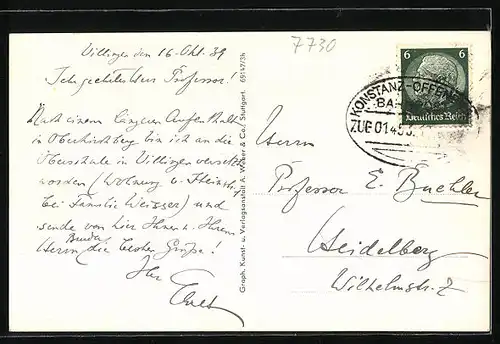 7730
Villingen den 16. Okt. 39
Sehr geehrter Herr Professor!
Nach einem längeren Aufenthalt
in Oberkirchberg bin ich an die
Oberschule in Villingen versetzt
worden (Wohnung
bei Familie Weisser) und
sende von hier Ihnen u. Ihrem
Herrn Bruder die besten Grüße!
Ihr
Graph. Kunst- u. Verlagsanstalt A. Weber & Co., Stuttgart. 69147/36
6 6
Deutsches Reich
KONSTANZ-OFFEN
BAH
ZUG 0145
Herrn
Professor E. Buchler
Heidelberg
Wilhelmstr. 2